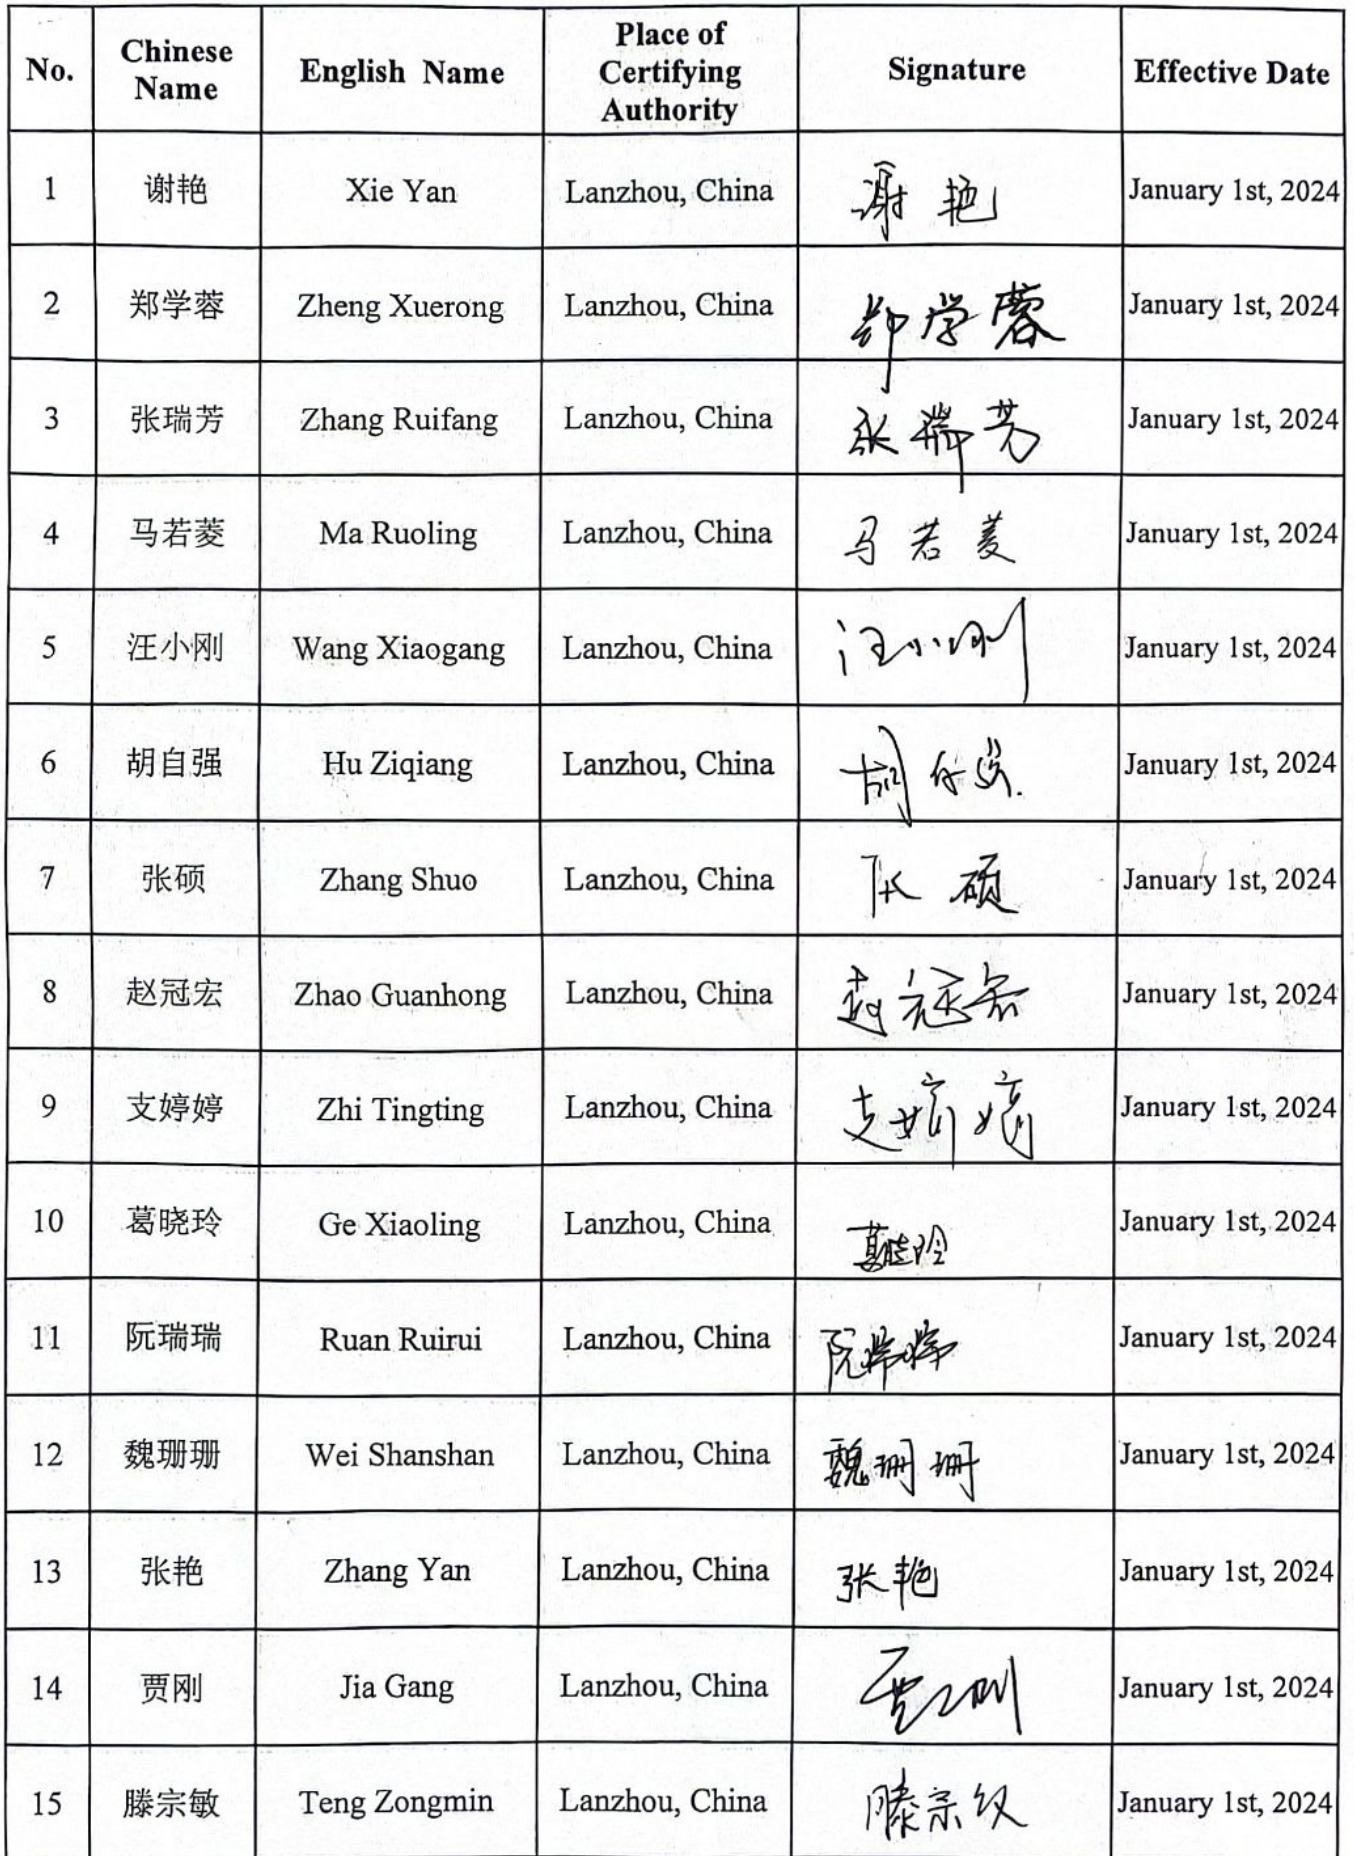 No. Chinese Name English Name Place of Certifying Authority Signature Effective Date
1 谢艳 Xie Yan Lanzhou, China 谢艳 January 1st, 2024
2 郑学蓉 Zheng Xuerong Lanzhou, China 郑学蓉 January 1st, 2024
3 张瑞芳 Zhang Ruifang Lanzhou, China 张瑞芳 January 1st, 2024
4 马若菱 Ma Ruoling Lanzhou, China 马若菱 January 1st, 2024
5 汪小刚 Wang Xiaogang Lanzhou, China 汪小刚 January 1st, 2024
6 胡自强 Hu Ziqiang Lanzhou, China 胡自强 January 1st, 2024
7 张硕 Zhang Shuo Lanzhou, China 张硕 January 1st, 2024
8 赵冠宏 Zhao Guanhong Lanzhou, China 赵冠宏 January 1st, 2024
9 支婷婷 Zhi Tingting Lanzhou, China 支婷婷 January 1st, 2024
10 葛晓玲 Ge Xiaoling Lanzhou, China 葛晓玲 January 1st, 2024
11 阮瑞瑞 Ruan Ruirui Lanzhou, China 阮瑞瑞 January 1st, 2024
12 魏珊珊 Wei Shanshan Lanzhou, China 魏珊珊 January 1st, 2024
13 张艳 Zhang Yan Lanzhou, China 张艳 January 1st, 2024
14 贾刚 Jia Gang Lanzhou, China 贾刚 January 1st, 2024
15 滕宗敏 Teng Zongmin Lanzhou, China 滕宗敏 January 1st, 2024